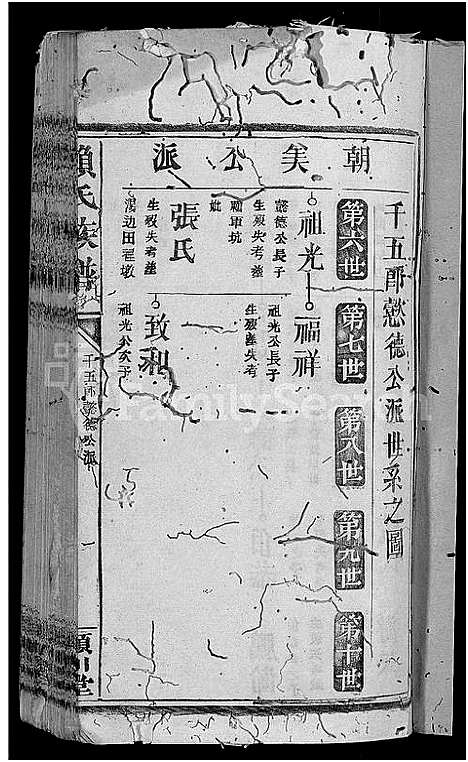 朝美公派
千五郎懿德公派世系之圖
第六世
第七世
第八世
第九世
第十世
祖光
懿德公長子
生殁失考葬
妣
張氏
生殁失考葬
湯边田
福祥
祖光公長子
生殁葬失考
致和
祖光公次子
賴氏族譜
千五郎懿德公派
一
潁川堂
FamilySearch